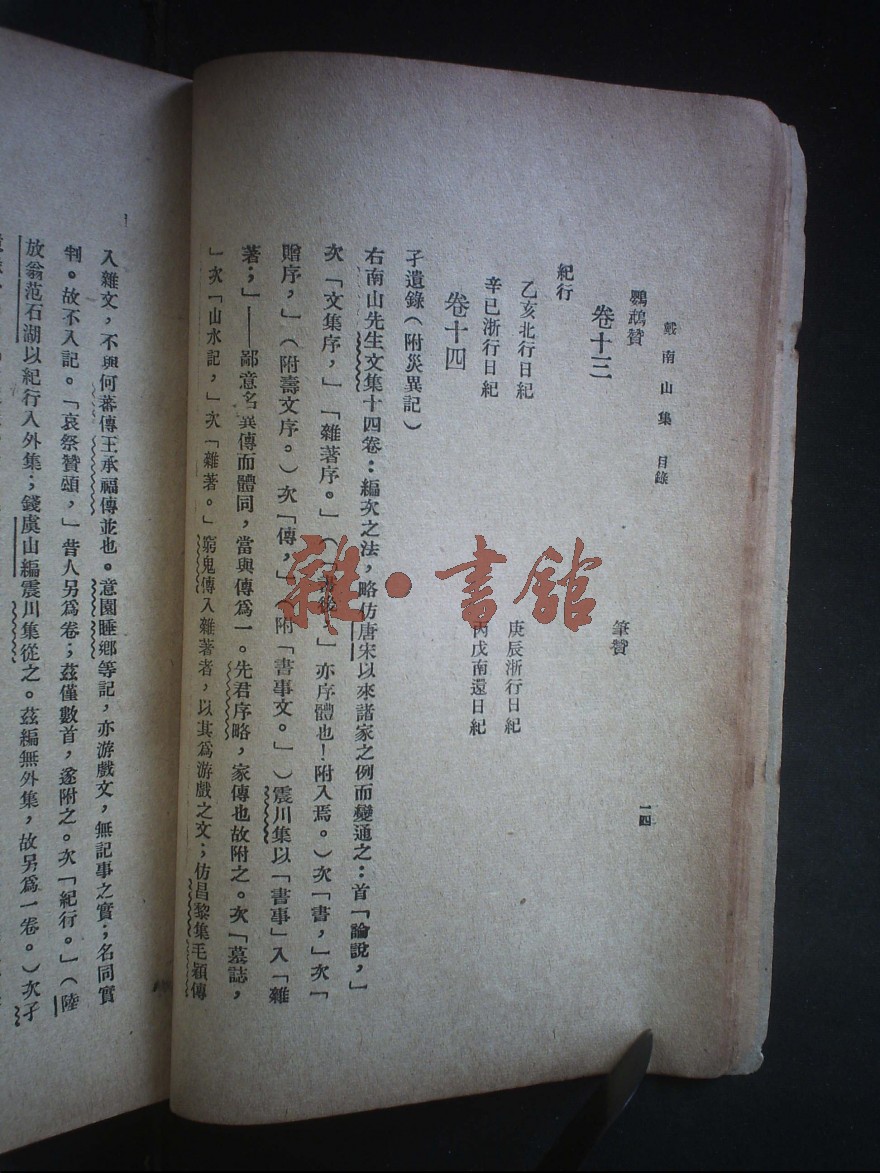 戴南山集 目錄
一四
鸚鵡贊
筆贊
卷十三
紀行
乙亥北行日紀
庚辰浙行日紀
辛巳浙行日紀
丙戌南還日紀
卷十四
孑遺錄(附災異記)
右南山先生文集十四卷:編次之法,略仿唐宋以來諸家之例而變通之:首「論說,」
次「文集序,」「雜著序。」(「書後」亦序體也!附入焉。)次「書,」次「
贈序,」(附壽文序。)次「傳,」(附「書事文。」)震川集以「書事」入「雜
著;」——鄙意名異傳而體同,當與傳爲一。先君序略,家傳也故附之。次「墓誌,
」次「山水記,」次「雜著。」窮鬼傳入雜著者,以其爲游戲之文;仿昌黎集毛穎傳
入雜文,不與何蕃傳王承福傳並也。意園睡鄉等記,亦游戲文,無記事之實;名同實
判。故不入記。「哀祭贊頌,」昔人另爲卷;茲僅數首,遂附之。次「紀行。」(陸
放翁范石湖以紀行入外集;錢虞山編震川集從之。茲編無外集,故另爲一卷。)次孑
雜·書館